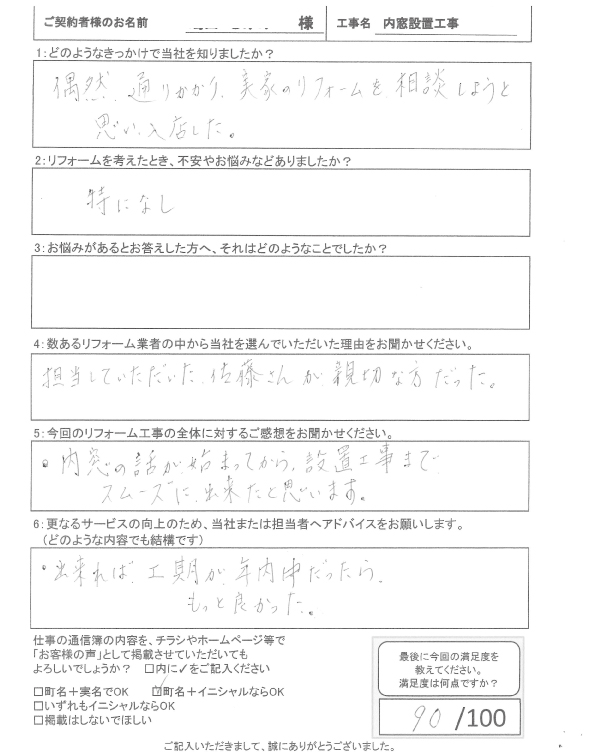 ご契約者様のお名前
様
工事名 内窓設置工事
1:どのようなきっかけで当社を知りましたか?
偶然、通りかかり、実家のリフォームを相談しようと
思い、入店した。
2:リフォームを考えたとき、不安やお悩みなどありましたか?
特になし
3:お悩みがあるとお答えした方へ、それはどのようなことでしたか?
4:数あるリフォーム業者の中から当社を選んでいただいた理由をお聞かせください。
担当していただいた、佐藤さんが、親切な方だった。
5:今回のリフォーム工事の全体に対するご感想をお聞かせください。
・内窓の話が始まってから、設置工事まで
スムーズに、出来たと思います。
6:更なるサービスの向上のため、当社または担当者へアドバイスをお願いします。
(どのような内容でも結構です)
・出来れば、工期が、年内中だったら、
もっと良かった。
仕事の通信簿の内容を、チラシやホームページ等で
「お客様の声」として掲載させていただいても
よろしいでしょうか? □内に✓をご記入ください
□町名+実名でOK ☑町名+イニシャルならOK
□いずれもイニシャルならOK
□掲載はしないでほしい
最後に今回の満足度を
教えてください。
満足度は何点ですか?
90/100
ご記入いただきまして、誠にありがとうございました。